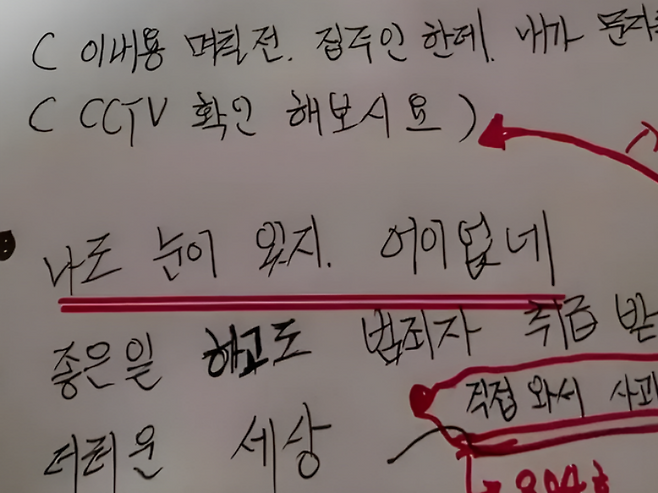 ( 이내용 며칠전. 집주인 한테. 내가 문자
( CCTV 확인 해보시요 )
나도 눈이 있지. 어이없네
좋은일 하고도 범죄자 취급 받
직접 와서 사과
더러운 세상